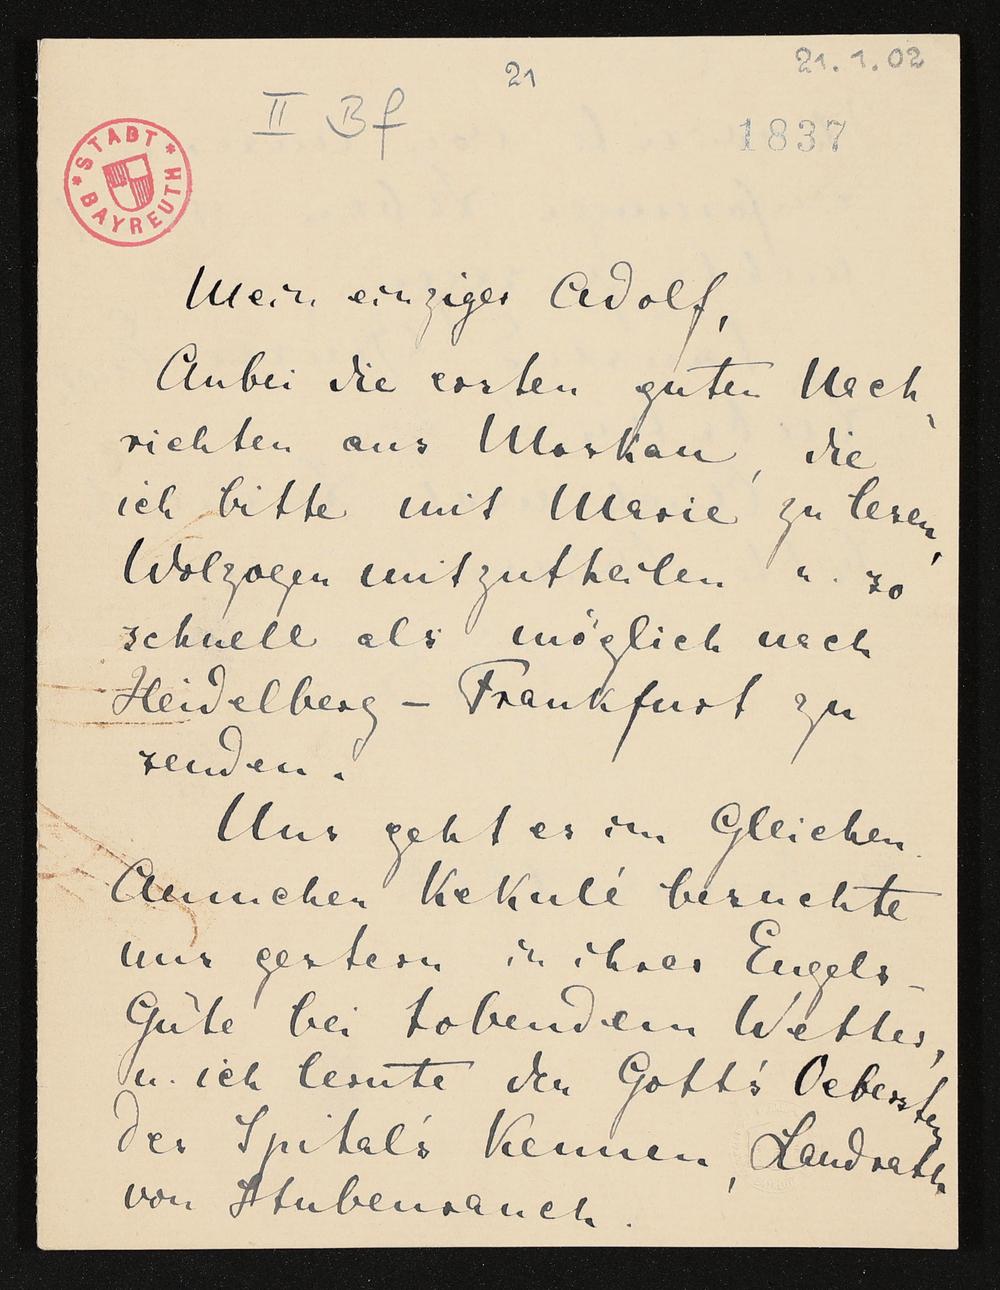 21
21.1.02
II Bf
1837
STADT BAYREUTH
Mein einziger Adolf,
Anbei die ersten guten Nach-
richten aus Moskau, die
ich bitte mit Marie zu lesen,
Wolzogen mitzutheilen u. so
schnell als möglich nach
Heidelberg – Frankfurt zu
senden.
Uns geht es im Gleichen.
Annchen Kekulé besuchte
uns gestern in ihrer Engels-
Güte bei tobendem Wetter,
u. ich lernte den Gott's Oebersten
des Spital's kennen, Landrath
von Stubenrauch.